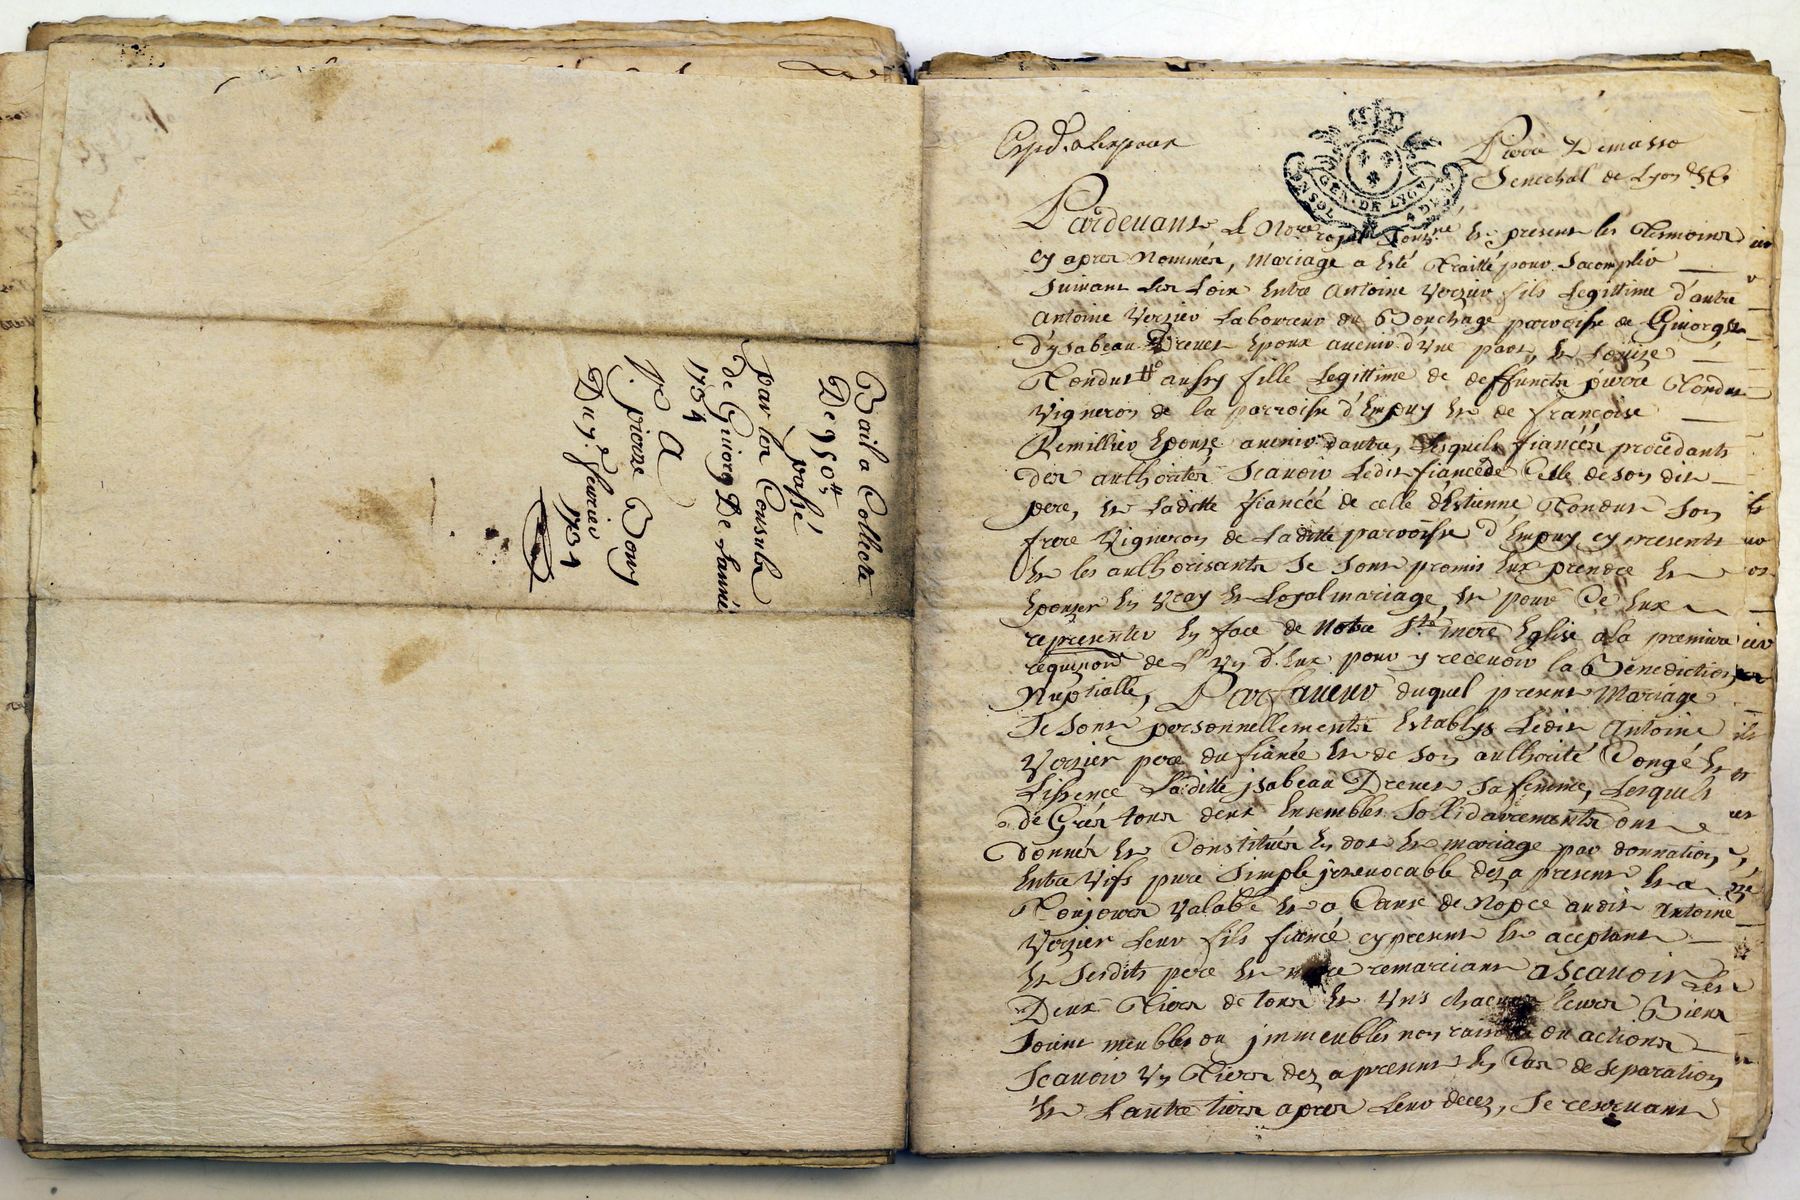 Bail a Collecte
De 950ᵗᵗ
passé
par les Consuls
de Guiorg De Lannée
1734
A
Sʳ. pierre Bouy
Du 7ᵉ feurier
1734
Expd. a Lespoux
GEN. DE LYON
Senechal de Lyon &c
Pardeuant Le Noʳᵉ royal Sousⁿᵉ Et present les Tesmoins
cy apres Nommés, Mariage a Esté Traitté pour Sacomplir
Suiuant Les Loix Entre Antoine Verzier fils Legittime d'autre
Antoine Verzier Laboureur du Bouchage parroisse de Guiorg &
d'ysabeau Dreuet Epoux auenir d'Vne part, Et Louize
Tondut aussy fille Legittime de deffuncts pierre Tondut
Vigneron de la parroisse d'Empuy Et de françoise
Remillier Epouse auenir dautre, Lesquels fiancés procedants
des authorités Scauoir Ledit fiancé de Celle de son dit
pere, Et Laditte fiancéé de celle d'Estienne Tondut Son
frere Vigneron de Laditte parroisse d'Empuy cy presents
Et les authorisants Se Sont promis Eux prendre Et
Epouser En Vray Et Loyal mariage, Et pour Ce Eux
representer En face de Notre Sᵗᵉ mere Eglise ala premiere
requision de L'Vn d'Eux pour y receuoir la Benediction
Nuptialle, Parfaueur duquel present Mariage
Se Sont personnellements Establys Ledit Antoine
Verzier pere du fiancé Et de Son authorité Congé Et
Lissence Laditte jsabeau Dreuet Sa femme, Lesquels
de Grés tous deux Ensembles Sollidairements ont
donnés Et Constitués En dot Et mariage par donnation
Entre Vifs pure Simple jrreuocable dez a present Et a
Toujours Valable Et a Cause de Nopce audit Antoine
Verzier Leur fils fiancé cy present Et aceptant
Et Sesdits pere Et mere remerciant ASçauoir Les
Deux Tiers de tous Et Vns chacuns leurs Biens
Soient meubles ou jmmeubles noms raisons ou actions
Scauoir Vn Tiers dez a present En Cas de Separation
Et Lautre tiers apres Leur decez, Se reseruant